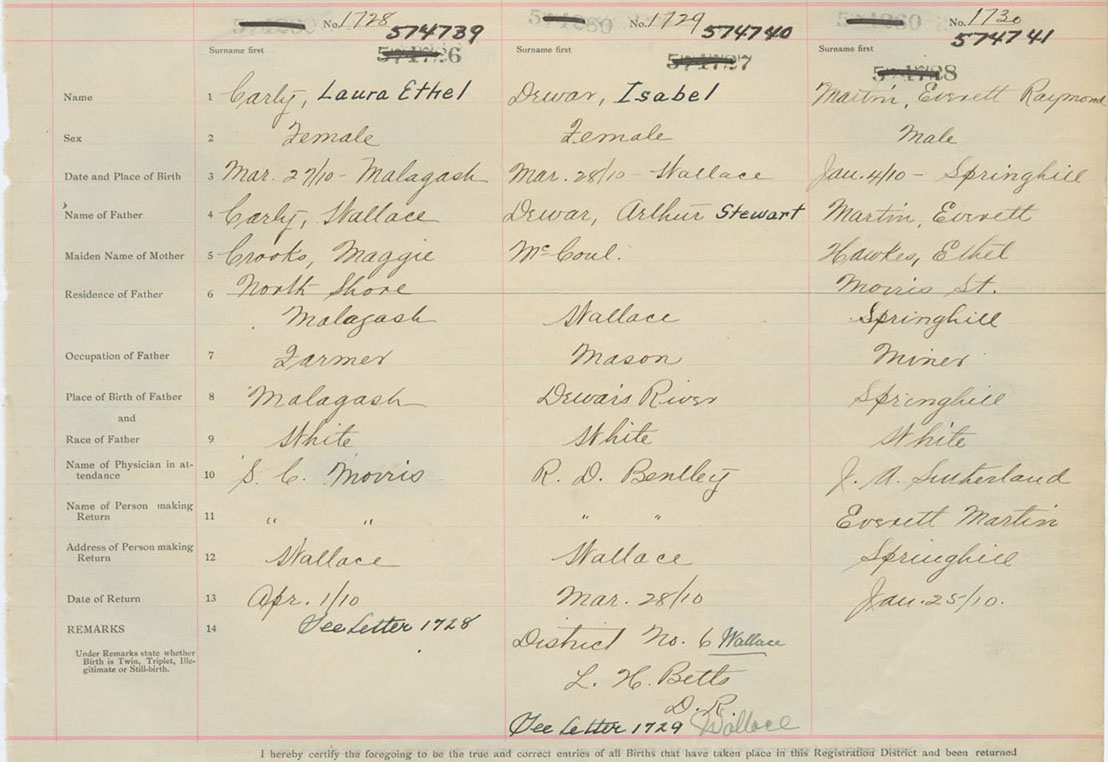 No. 1728 No. 1729 No. 1730
574739 574740 574741
Surname first Surname first Surname first
Name 1 Carly, Laura Ethel Dewar, Isabel Martin, Everett Raymond
Sex 2 Female Female Male
Date and Place of Birth 3 Mar. 27/10 - Malagash Mar. 28/10 - Wallace Jan. 4/10 - Springhill
Name of Father 4 Carly, Wallace Dewar, Arthur Stewart Martin, Everett
Maiden Name of Mother 5 Crooks, Maggie McCoul. Hawkes, Ethel
Residence of Father 6 North Shore Morris St.
Malagash Wallace Springhill
Occupation of Father 7 Farmer Mason Miner
Place of Birth of Father 8 Malagash Dewars River Springhill
and
Race of Father 9 White White White
Name of Physician in at-
tendance 10 S. C. Morris R. D. Bentley J. A. Sutherland
Name of Person making
Return 11 " " " " Everett Martin
Address of Person making
Return 12 Wallace Wallace Springhill
Date of Return 13 Apr. 1/10 Mar. 28/10 Jan. 25/10.
REMARKS 14 See Letter 1728 District No. 6 Wallace
Under Remarks state whether
Birth is Twin, Triplet, Ille-
gitimate or Still-birth.
L. H. Betts
D. R.
See Letter 1729 Wallace
I hereby certify the foregoing to be the true and correct entries of all Births that have taken place in this Registration District and been returned